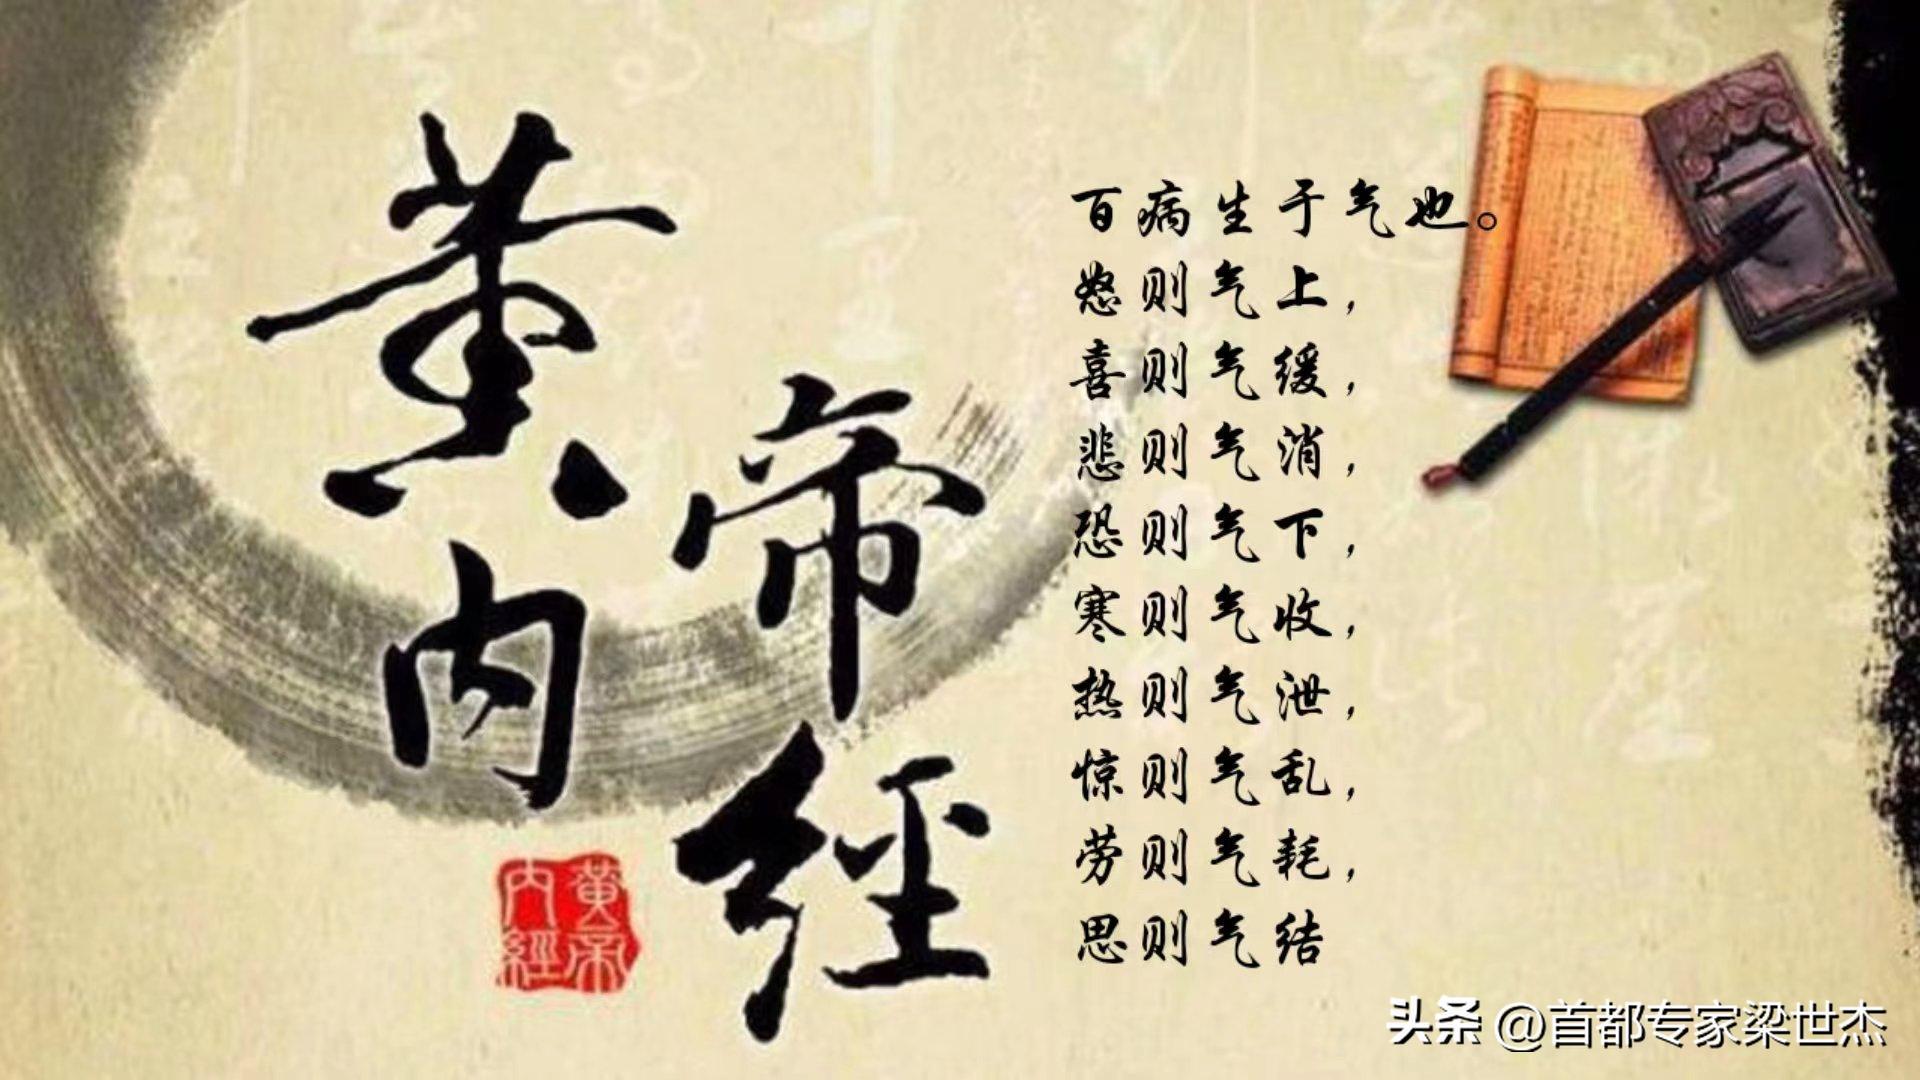 黄帝
内經
百病生于气也。
怒则气上，
喜则气缓，
悲则气消，
恐则气下，
寒则气收，
热则气泄，
惊则气乱，
劳则气耗，
思则气结
黄帝
内經
头条 @首都专家梁世杰